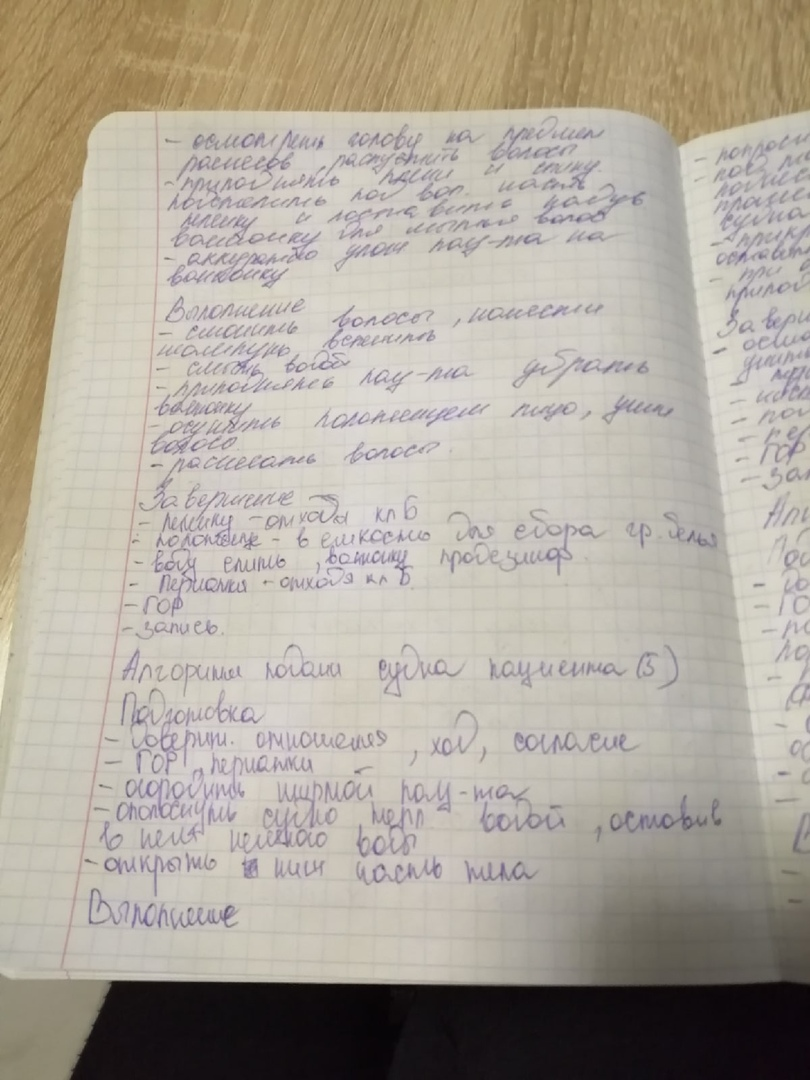 - осмотреть голову на предмет
расчесов, распустить волосы
- приподнять плечи и спину
подстелить под вол. часть
пленку и поставить надув
ванночку для мытья волос
- аккуратно улож пац-та на
ванночку
Выполнение
- смочить волосы, нанести
шампунь вспенить
- смыть водой
- приподнять пац-та убрать
ванночку
- осушить полотенцем лицо, уши
волосы
- расчесать волосы.
Завершение
- пленку - отходы кл Б
- полотенце - в емкость для сбора гр. белья
- воду слить, ванночку продезинф.
- Перчатки - отходы кл Б.
- ГОР
- запись.
Алгоритм подачи судна пациента (5)
Подготовка
- доверит. отношения, ход, согласие
- ГОР, перчатки
- огородить ширмой пац-та
- ополоснуть судно тепл водой, оставив
в нем немного воды
- открыть ниж часть тела
Выполнение
- попроси
- под
подне
проце
судна
- прикр
остави
- при
припод
Завери
- осмо
- пол
- пер
- ГОР
- зап
Алг
По
- ГО